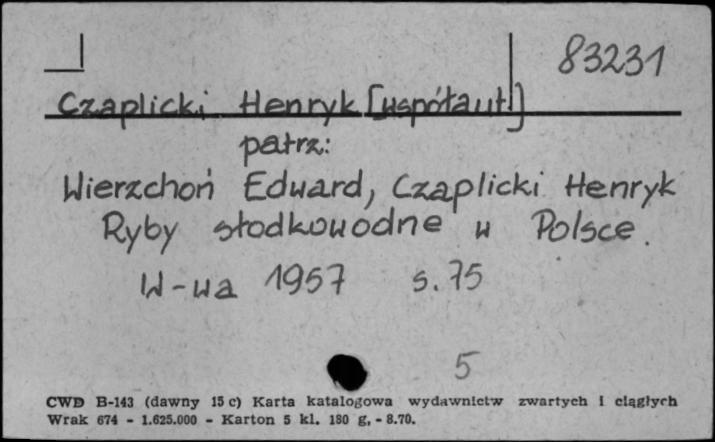 83231
Czaplicki Henryk [współaut.]
patrz:
Wierzchoń Edward, Czaplicki Henryk
Ryby słodkowodne w Polsce.
W-wa 1957 s. 75
5
CWD B-143 (dawny 15 c) Karta katalogowa wydawnictw zwartych i ciągłych
Wrak 674 - 1.625.000 - Karton 5 kl. 180 g. - 8.70.